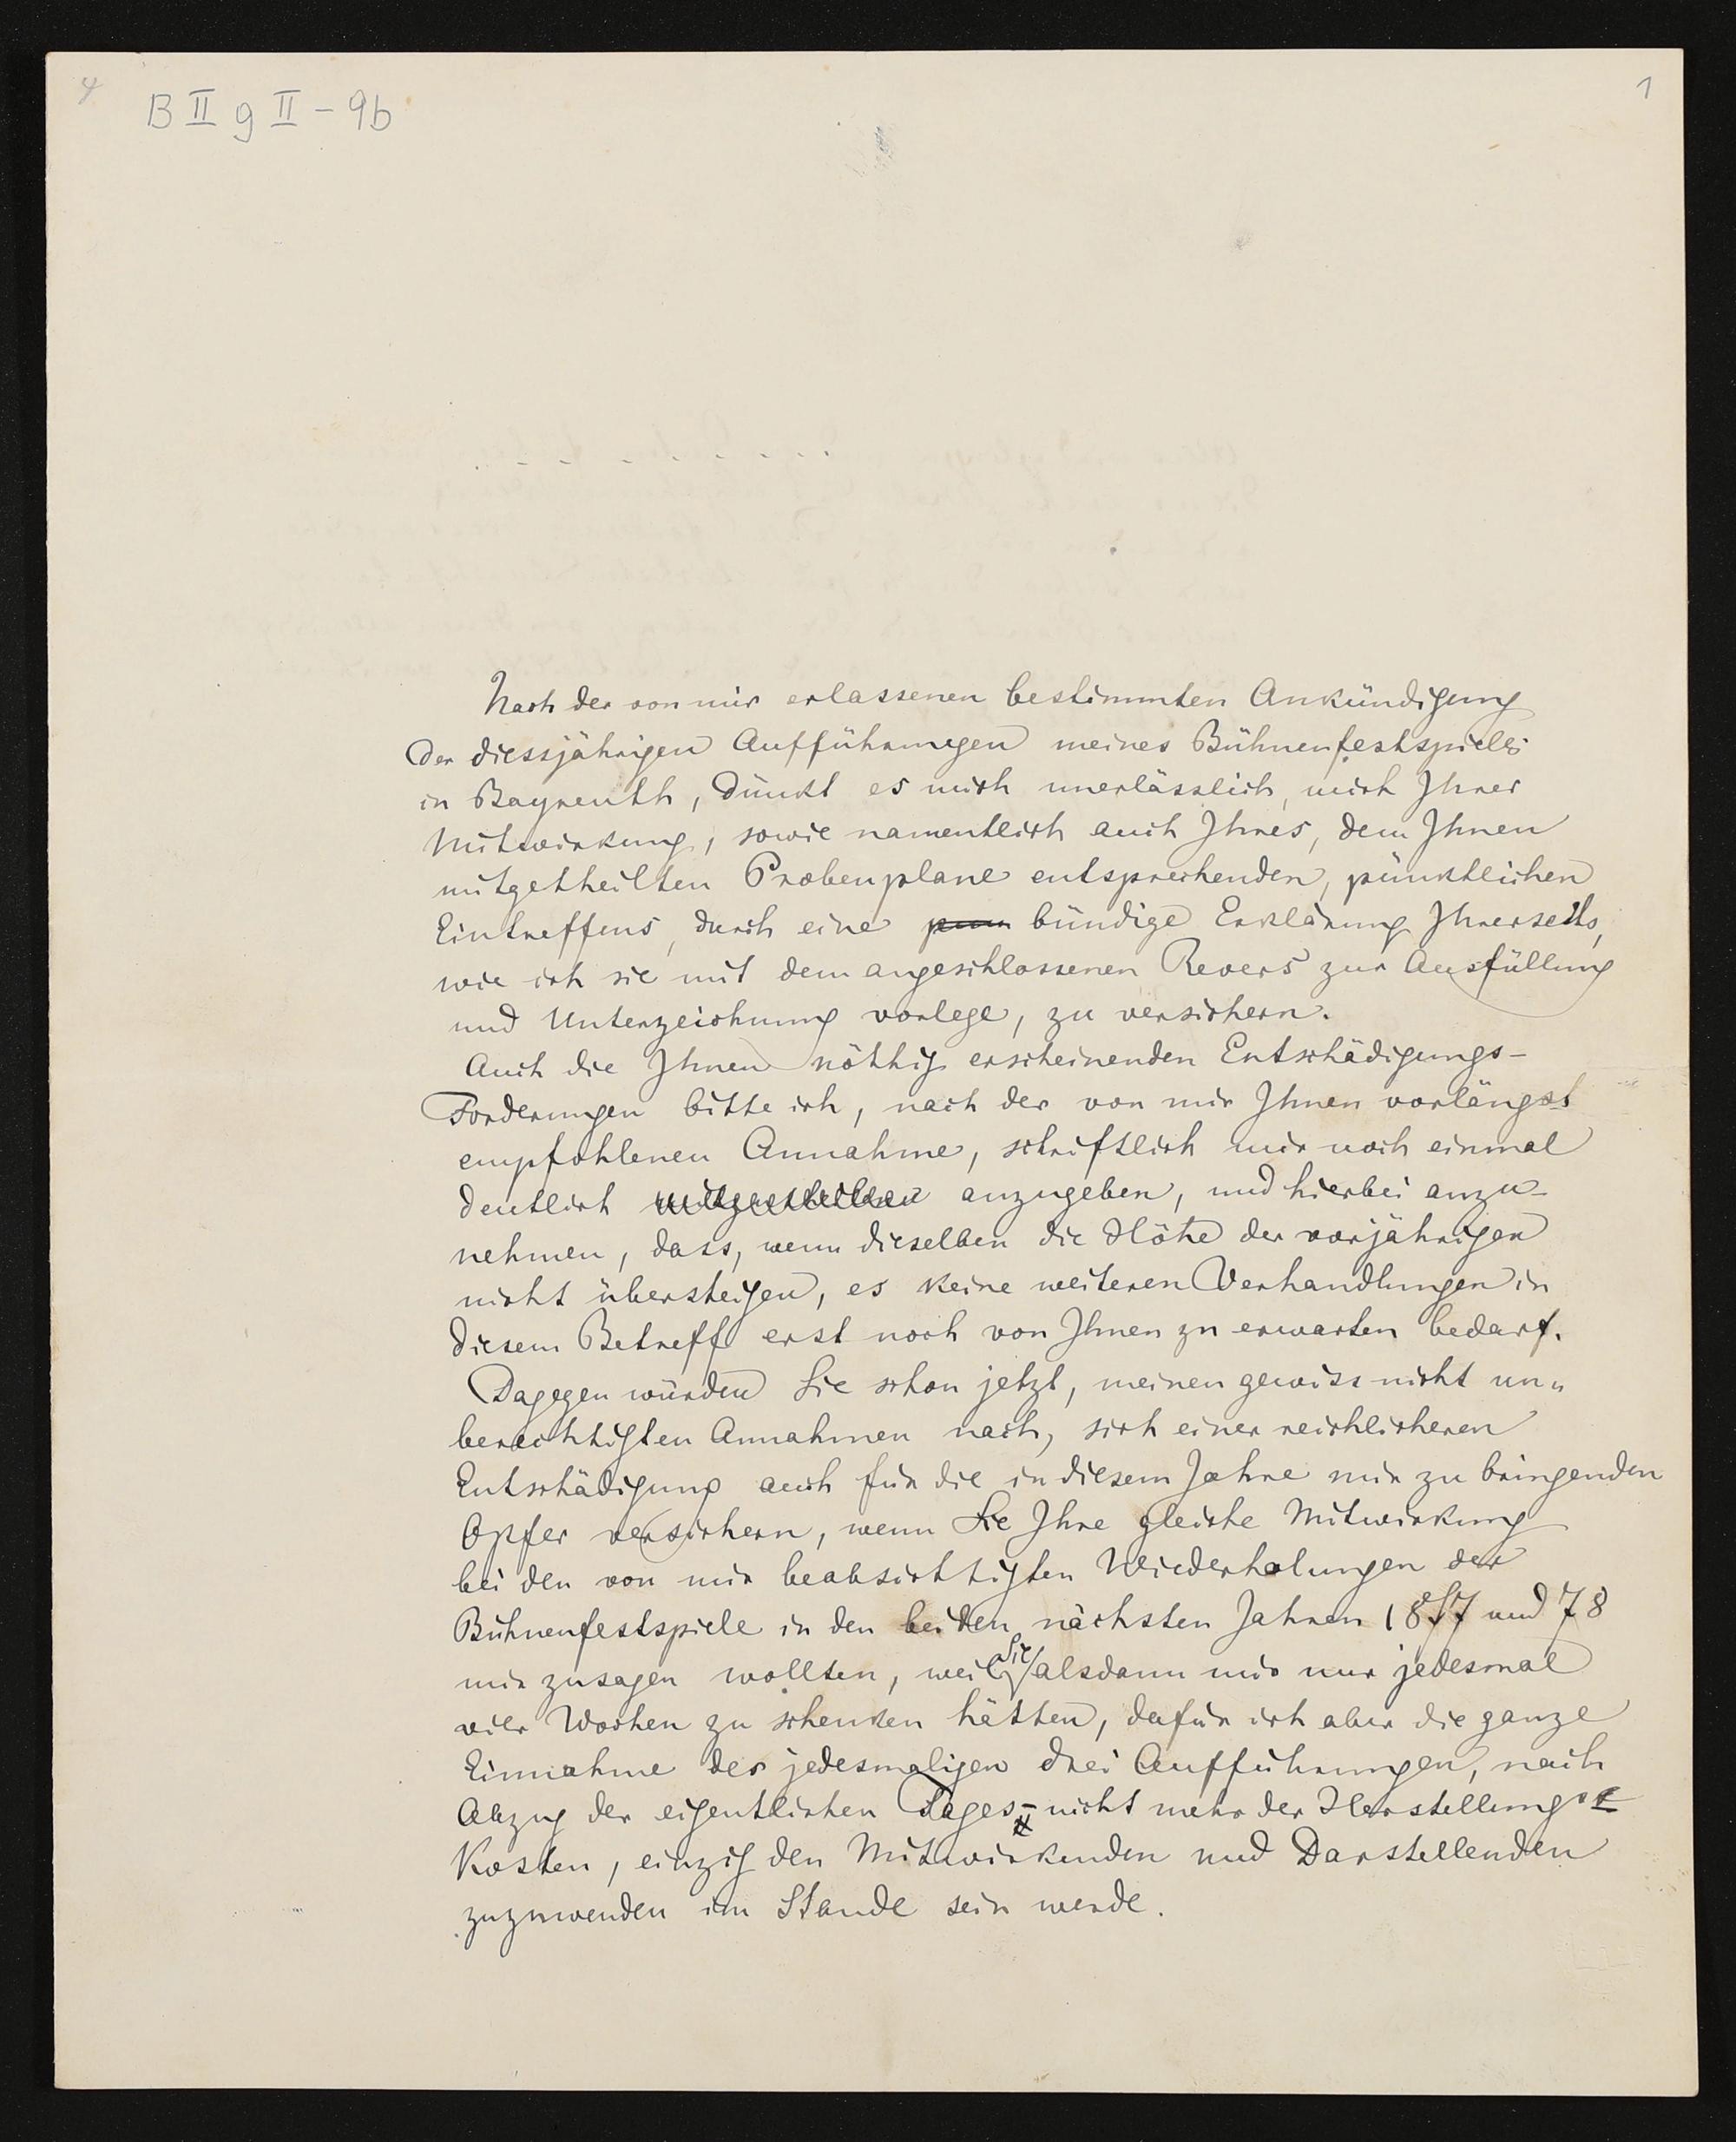 B II g II - 9b
1
Nach der von mir erlassenen bestimmten Ankündigung
der diessjährigen Aufführungen meines Bühnenfestspieles
in Bayreuth, dünkt es mich unerlässlich, mich Ihrer
Mitwirkung, sowie namentlich auch Ihres, dem Ihnen
mitgetheilten Probenplane entsprechenden, pünktlichen
Eintreffens, durch eine bündige Erklärung Ihrerseits,
wie ich sie mit dem angeschlossenen Revers zur Ausfüllung
und Unterzeichnung vorlege, zu versichern.
Auch die Ihnen nöthig erscheinenden Entschädigungs-
Forderungen bitte ich, nach der von mir Ihnen vorlängst
empfohlenen Annahme, schriftlich mir noch einmal
deutlich anzugeben, und hierbei anzu-
nehmen, dass, wenn dieselben die Höhe der vorjährigen
nicht übersteigen, es keine weiteren Verhandlungen in
diesem Betreff erst noch von Ihnen zu erwarten bedarf.
Dagegen würden Sie schon jetzt, meinen gewiss nicht un„
berechtigten Annahmen nach, sich einer reichlicheren
Entschädigung auch für die in diesem Jahre mir zu bringenden
Opfer versichern, wenn Sie Ihre gleiche Mitwirkung
bei den von mir beabsichtigten Wiederholungen der
Bühnenfestspiele in den beiden nächsten Jahren 1877 und 78
mir zusagen wollten, weil Sie alsdann mir nur jedesmal
vier Wochen zu schenken hätten, dafür ich aber die ganze
Einnahme der jedesmaligen drei Aufführungen, nach
Abzug der eigentlichen Tages- nicht mehr der Herstellungs-
Kosten, einzig den Mitwirkenden und Darstellenden
zuzuwenden im Stande sein werde.